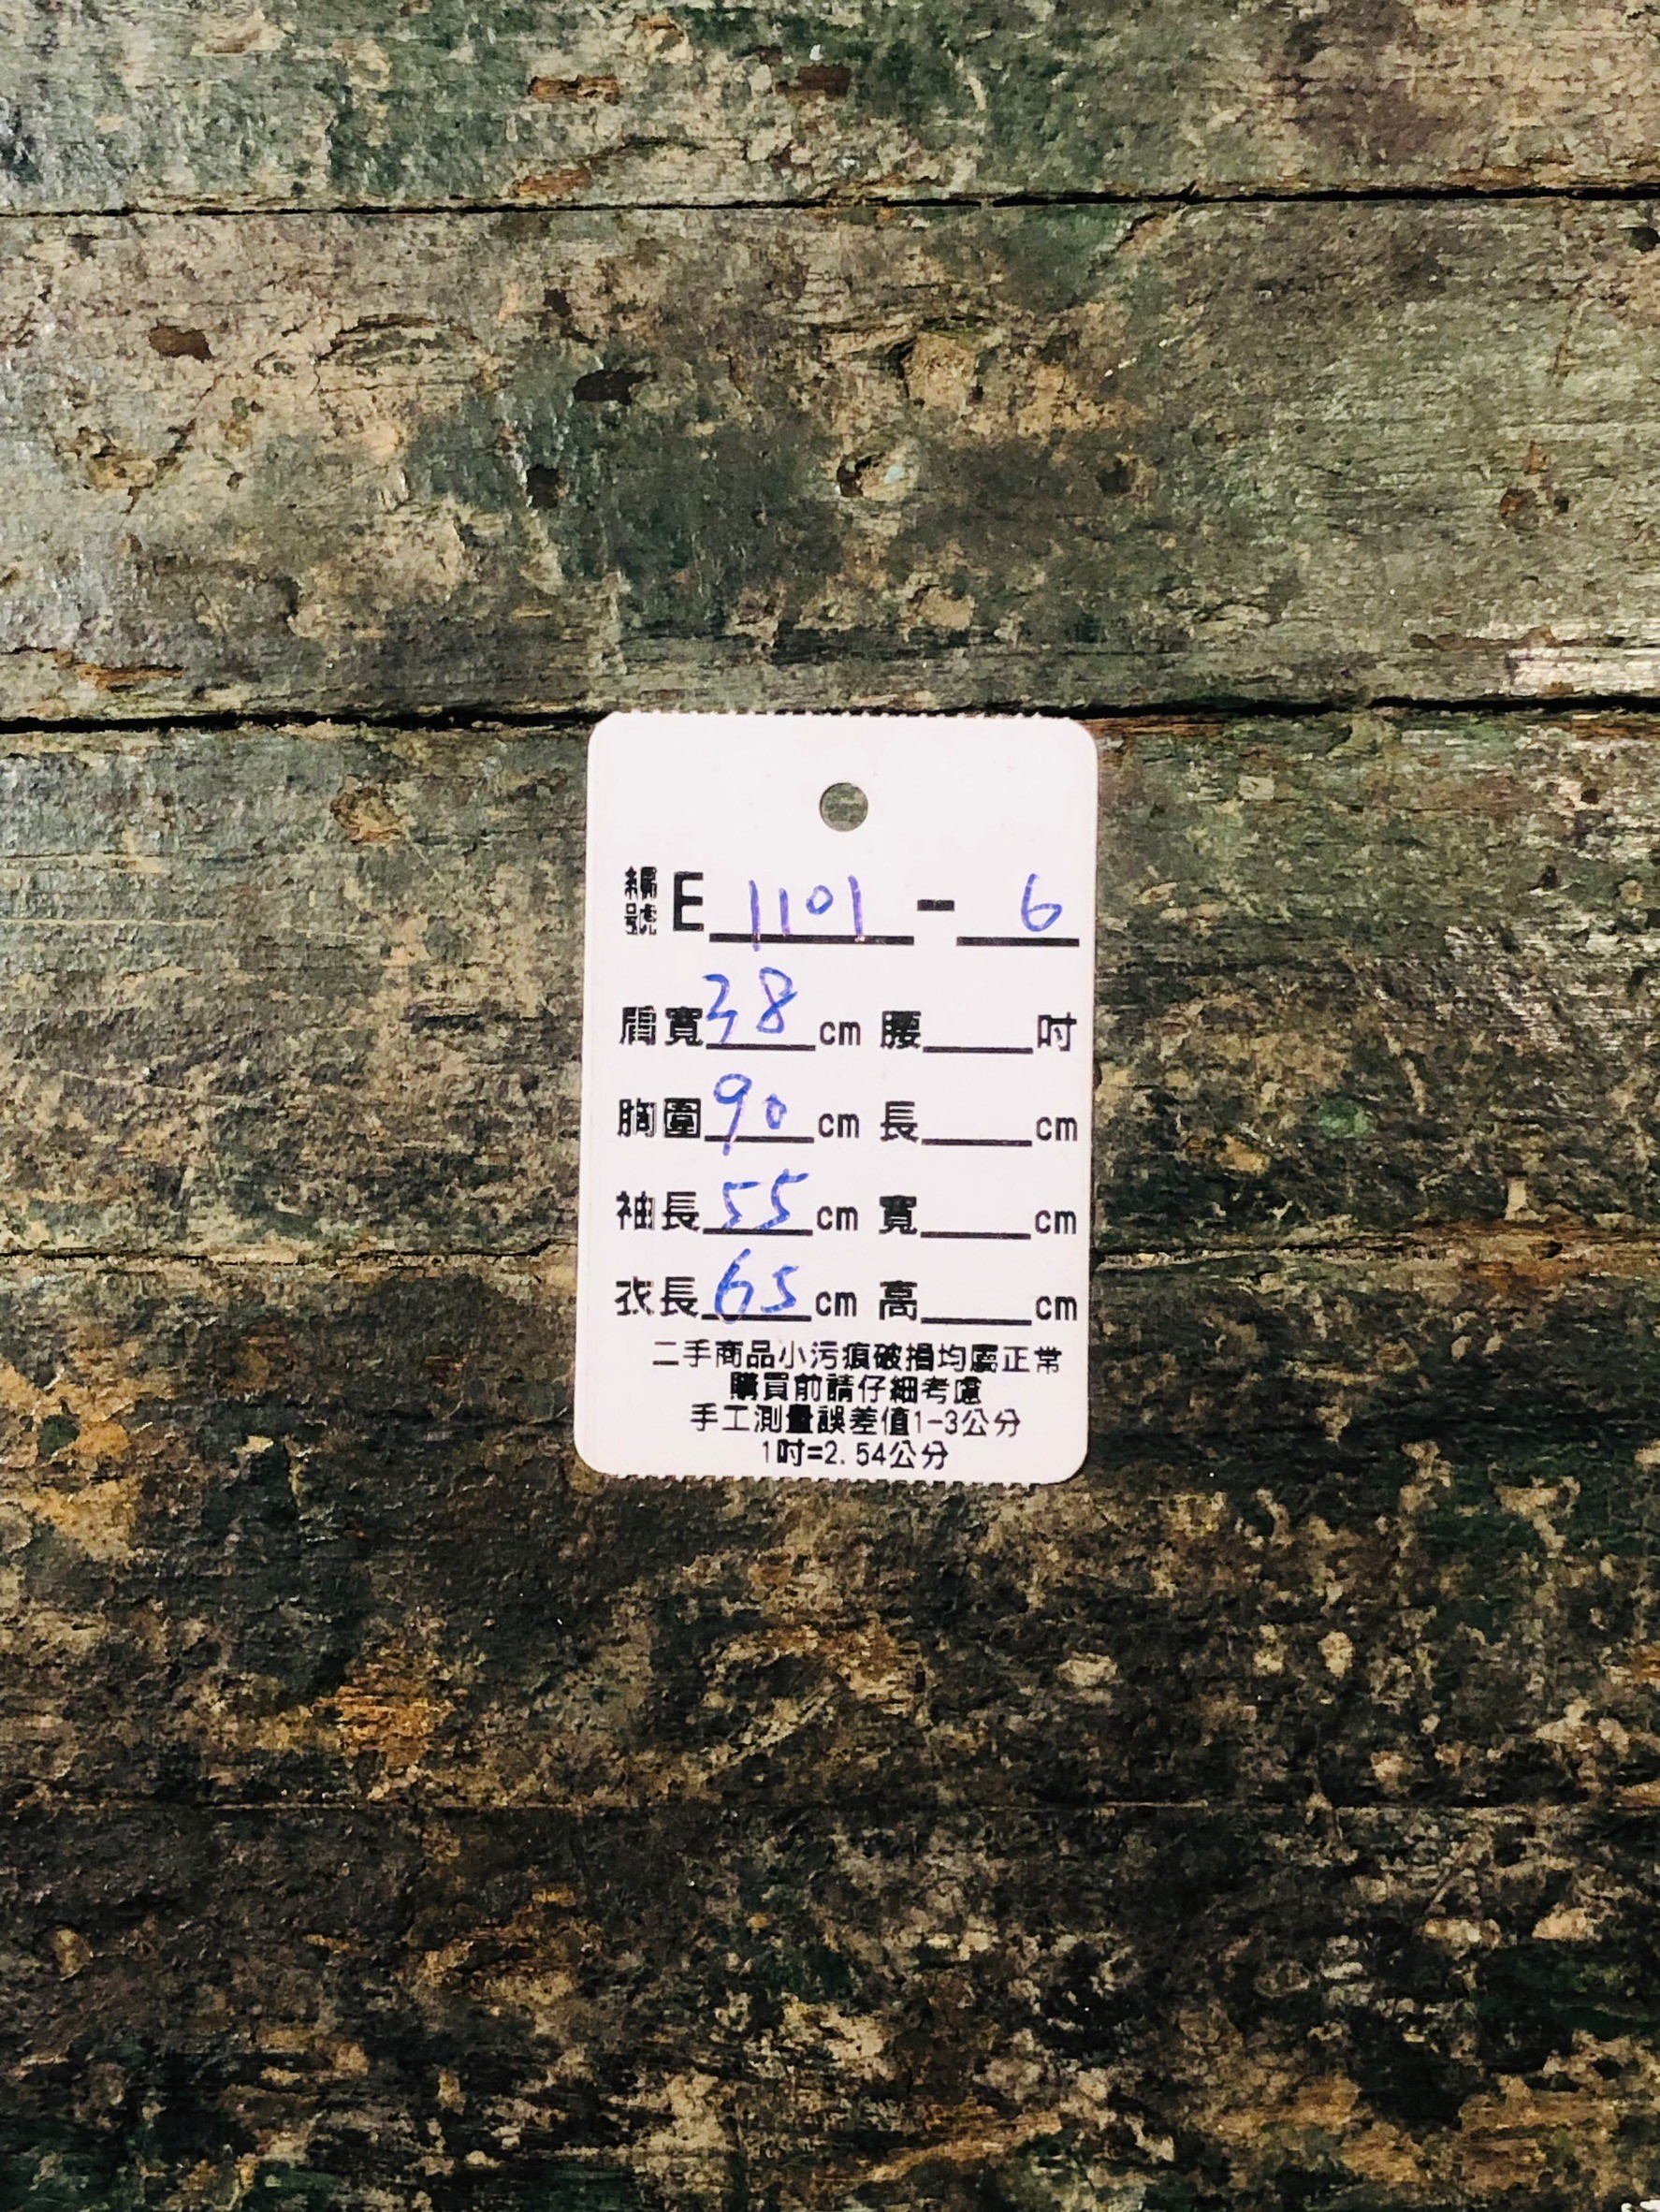 編號 E 1101 - 6
肩寬 38 cm 腰____吋
胸圍 90 cm 長____cm
袖長 55 cm 寬____cm
衣長 65 cm 高____cm
二手商品小污痕破損均屬正常
購買前請仔細考慮
手工測量誤差值1-3公分
1吋=2.54公分